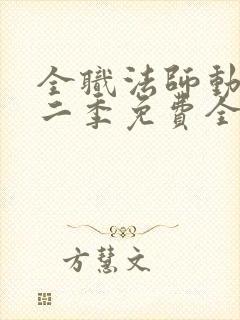 全職法師動
二季免費全
方慧文